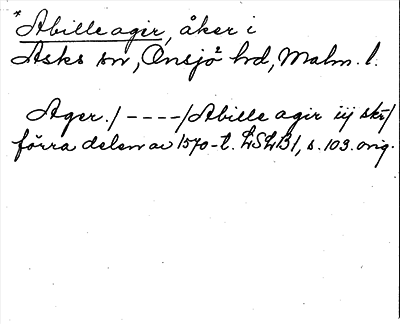 * Abilleagir, åker i
Asks sn, Onsjö hd, Malm. l.
Ager. / ---- / Abille agir iij skr/
förra delen av 1570-t. LSLB1, s. 103. orig.